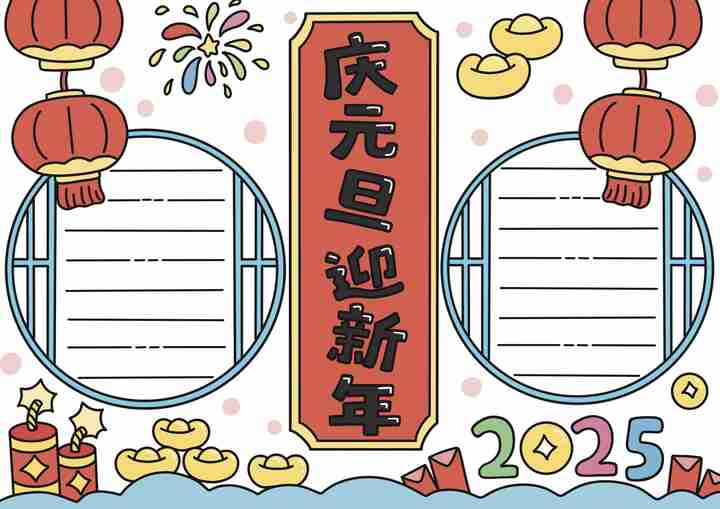 庆元旦迎新年
2025